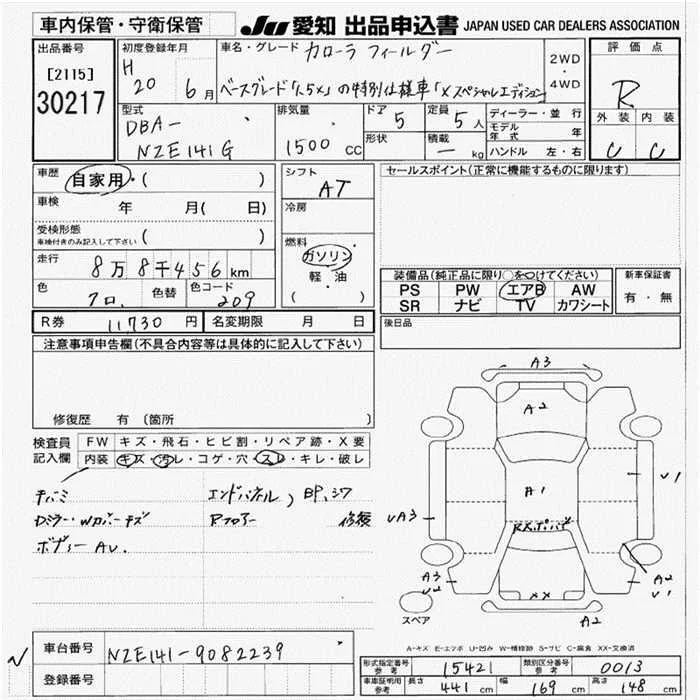 車内保管・守衛保管
JU 愛知 出品申込書 JAPAN USED CAR DEALERS ASSOCIATION
出品番号
[2115]
30217
初度登録年月
H 20 6月
車名・グレード カローラ フィールダー
ベースグレード「1.5X」の特別仕様車「Xスペシャルエディション」
2WD
・
4WD
評価点
R
外装 内装
C C
型式
DBA-
NZE141G
排気量
1500 CC
ドア 5
形状
定員 5人
積載 - kg
ディーラー・並行
モデル年式 年
ハンドル 左・右
車歴 自家用・( )
車検 年 月( 日)
受検形態
車検付きのみ記入して下さい ( )
走行 8万8千456km
色 クロ 色替 色コード 209
シフト AT
冷房
燃料
ガソリン
軽・油
( )
セールスポイント(正常に機能するものに限ります)
装備品(純正品に限り○をつけてください)
PS PW エアB AW
SR ナビ TV カワシート
新車保証書
有・無
R券 11730円 名変期限 月 日
後日品
注意事項申告欄(不具合内容等は具体的に記入して下さい)
修復歴 有(箇所 )
検査員記入欄
FW キズ・飛石・ヒビ割・リペア跡・X要
内装 キズ・汚レ・コゲ・穴・スレ・キレ・破レ
エンドパネル、BP、シワ
Rフロアー 修復
ボディーAU.
A3
A2
A1
RX
UA3
U1
A3
U2
A2
U1
XX
A2
スペア
A-キズ E-エクボ U-凹み W-補修跡 S-サビ C-腐食 XX-交換済
車台番号 NZE141-9082239
登録番号
形式指定番号 参考 15421
類別区分番号 参考 0013
車庫証明用 参考 長さ 441cm 幅 169cm 高さ 148cm